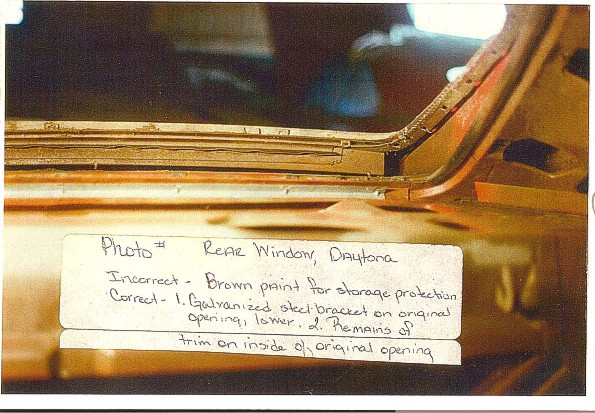 Photo # Rear Window, Daytona
Incorrect - Brown paint for storage protection
Correct - 1. Galvanized steel bracket on original
opening, lower. 2. Remains of
trim on inside of original opening